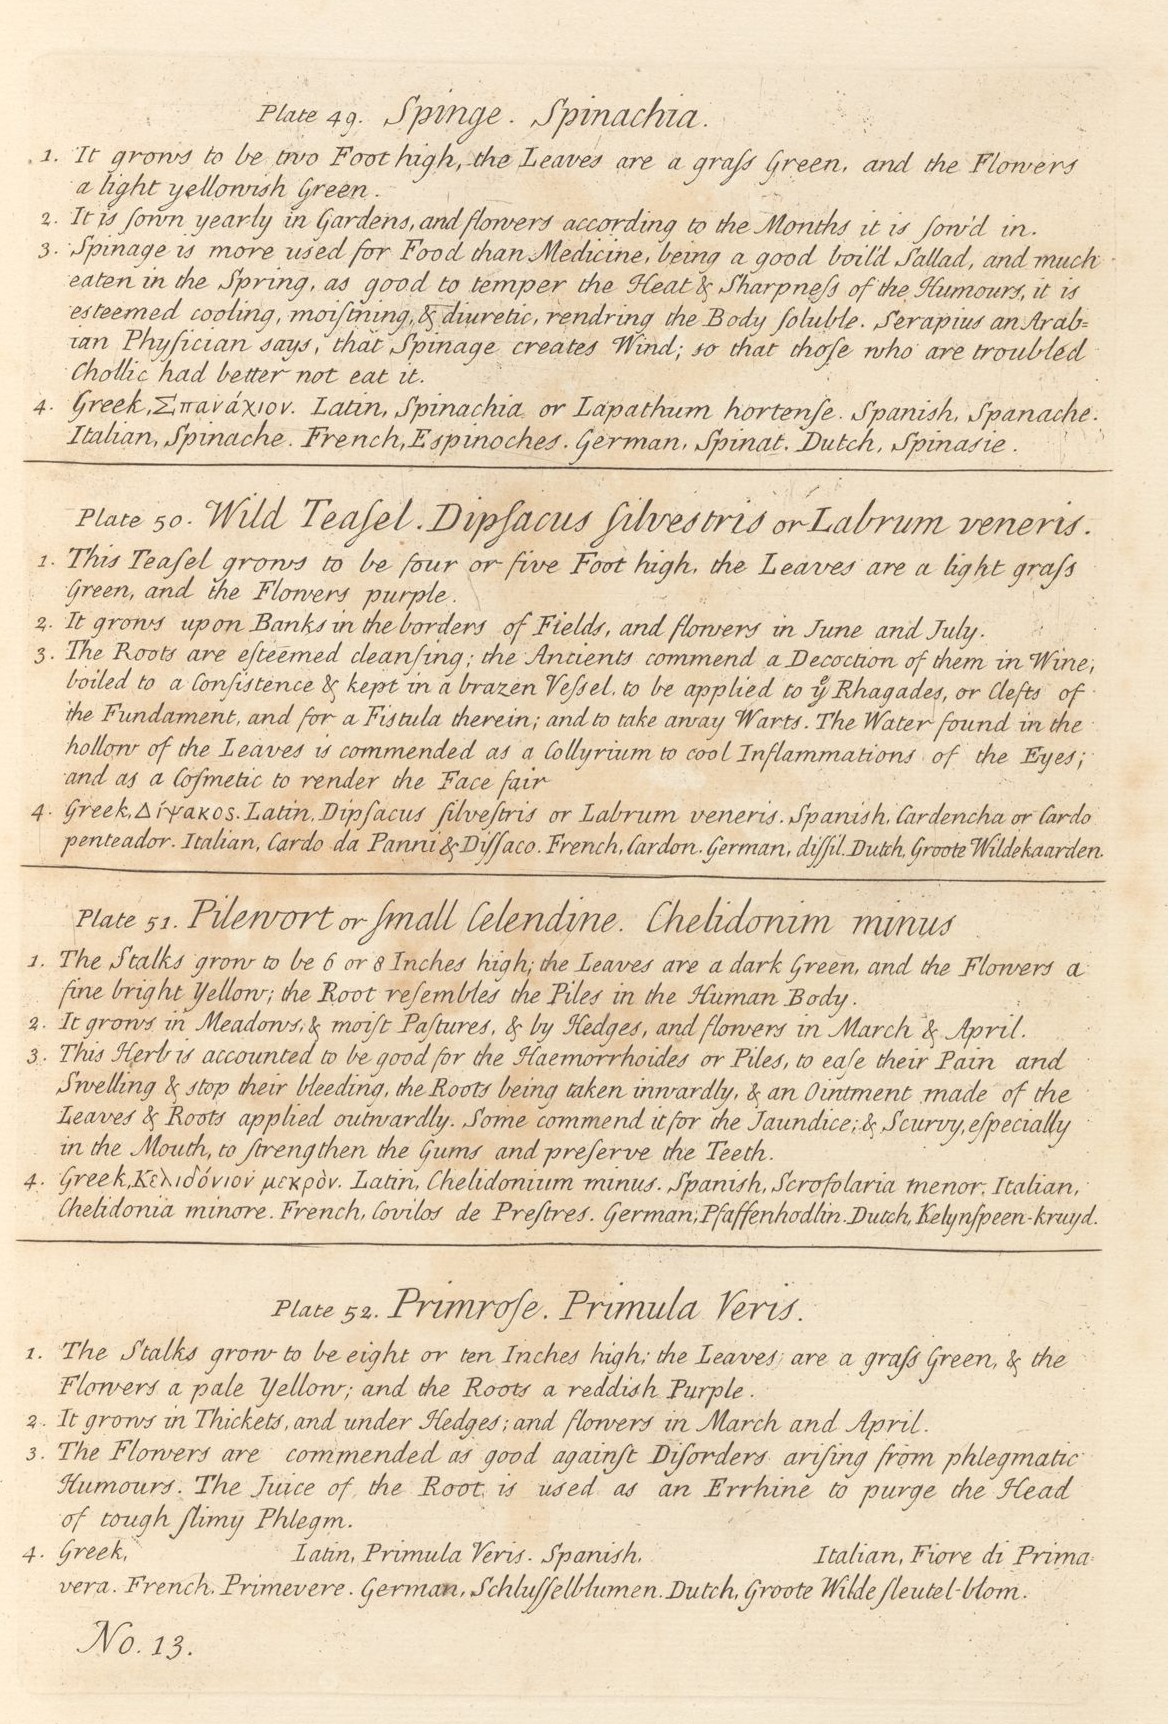 Plate 49. Spinge. Spinachia.
1. It grows to be two Foot high, the Leaves are a graſs Green, and the Flowers
a light yellowish Green.
2. It is ſown yearly in Gardens, and flowers according to the Months it is ſow'd in.
3. Spinage is more used for Food than Medicine, being a good boil'd Sallad, and much
eaten in the Spring, as good to temper the Heat & Sharpneſs of the Humours, it is
esteemed cooling, moiſtning, & diuretic, rendring the Body ſoluble. Serapius an Arab=
ian Phyſician says, that Spinage creates Wind; so that thoſe who are troubled
Chollic had better not eat it.
4. Greek, Σπανάχιον. Latin, Spinachia or Lapathum hortenſe. Spanish, Spanache.
Italian, Spinache. French, Espinoches. German, Spinat. Dutch, Spinasie.
Plate 50. Wild Teaſel. Dipſacus ſilvestris or Labrum veneris.
1. This Teaſel grows to be four or five Foot high, the Leaves are a light graſs
Green, and the Flowers purple.
2. It grows upon Banks in the borders of Fields, and flowers in June and July.
3. The Roots are eſteemed cleanſing; the Antients commend a Decoction of them in Wine,
boiled to a Conſistence & kept in a brazen Veſsel, to be applied to yͤ Rhagades, or Clefts of
the Fundament, and for a Fistula therein; and to take away Warts. The Water found in the
hollow of the Leaves is commended as a Collyrium to cool Inflammations of the Eyes;
and as a Coſmetic to render the Face fair
4. Greek, Δίψακος. Latin, Dipſacus ſilveſtris or Labrum veneris. Spanish, Cardencha or Cardo
penteador. Italian, Cardo da Panni & Diſſaco. French, Cardon. German, diſſil. Dutch, Groote Wildekaarden.
Plate 51. Pilewort or ſmall Celendine. Chelidonim minus
1. The Stalks grow to be 6 or 8 Inches high; the Leaves are a dark Green, and the Flowers a
fine bright Yellow; the Root reſembles the Piles in the Human Body.
2. It grows in Meadows, & moiſt Paſtures, & by Hedges, and flowers in March & April.
3. This Herb is accounted to be good for the Haemorrhoides or Piles, to eaſe their Pain and
Swelling & stop their bleeding, the Roots being taken inwardly, & an Ointment made of the
Leaves & Roots applied outwardly. Some commend it for the Jaundice; & Scurvy, eſpecially
in the Mouth, to ſtrengthen the Gums and preſerve the Teeth.
4. Greek, Κελιδόνιον μεκρὸν. Latin, Chelidonium minus. Spanish, Scrofolaria menor. Italian,
Chelidonia minore. French, Covilos de Preſtres. German, Pfaffenhodlin. Dutch, Kelynſpeen-kruyd.
Plate 52. Primroſe. Primula Veris.
1. The Stalks grow to be eight or ten Inches high; the Leaves are a graſs Green, & the
Flowers a pale Yellow; and the Roots a reddish Purple.
2. It grows in Thickets, and under Hedges; and flowers in March and April.
3. The Flowers are commended as good againſt Diſorders ariſing from phlegmatic
Humours. The Juice of the Root is used as an Errhine to purge the Head
of tough ſlimy Phlegm.
4. Greek, Latin, Primula Veris. Spanish, Italian, Fiore di Prima-
vera. French, Primevere. German, Schluſſelblumen. Dutch, Groote Wilde ſleutel-blom.
No. 13.